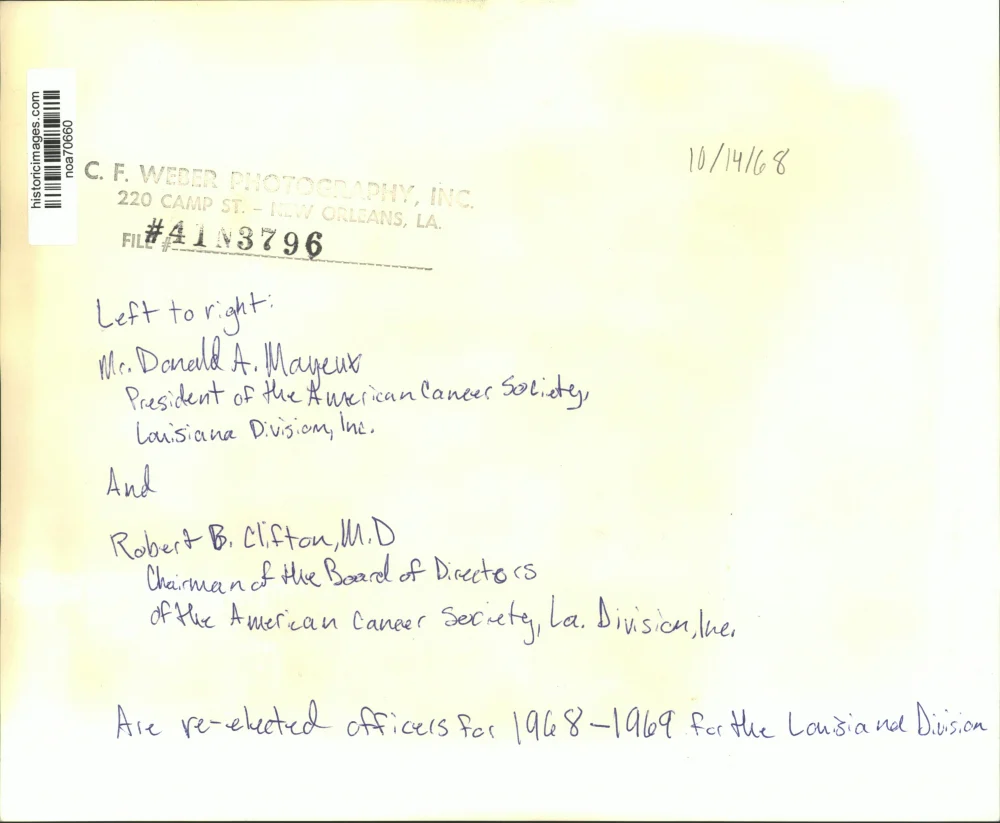 historicimages.com
noa70660
10/14/68
C. F. WEBER PHOTOGRAPHY, INC.
220 CAMP ST. - NEW ORLEANS, LA.
FILE # #41N3796
Left to right:
Mr. Donald A. Mayeux
President of the American Cancer Society,
Louisiana Division, Inc.
And
Robert B. Clifton, M.D
Chairman of the Board of Directors
of the American Cancer Society, La. Division, Inc.
Are re-elected officers for 1968-1969 for the Louisiana Division